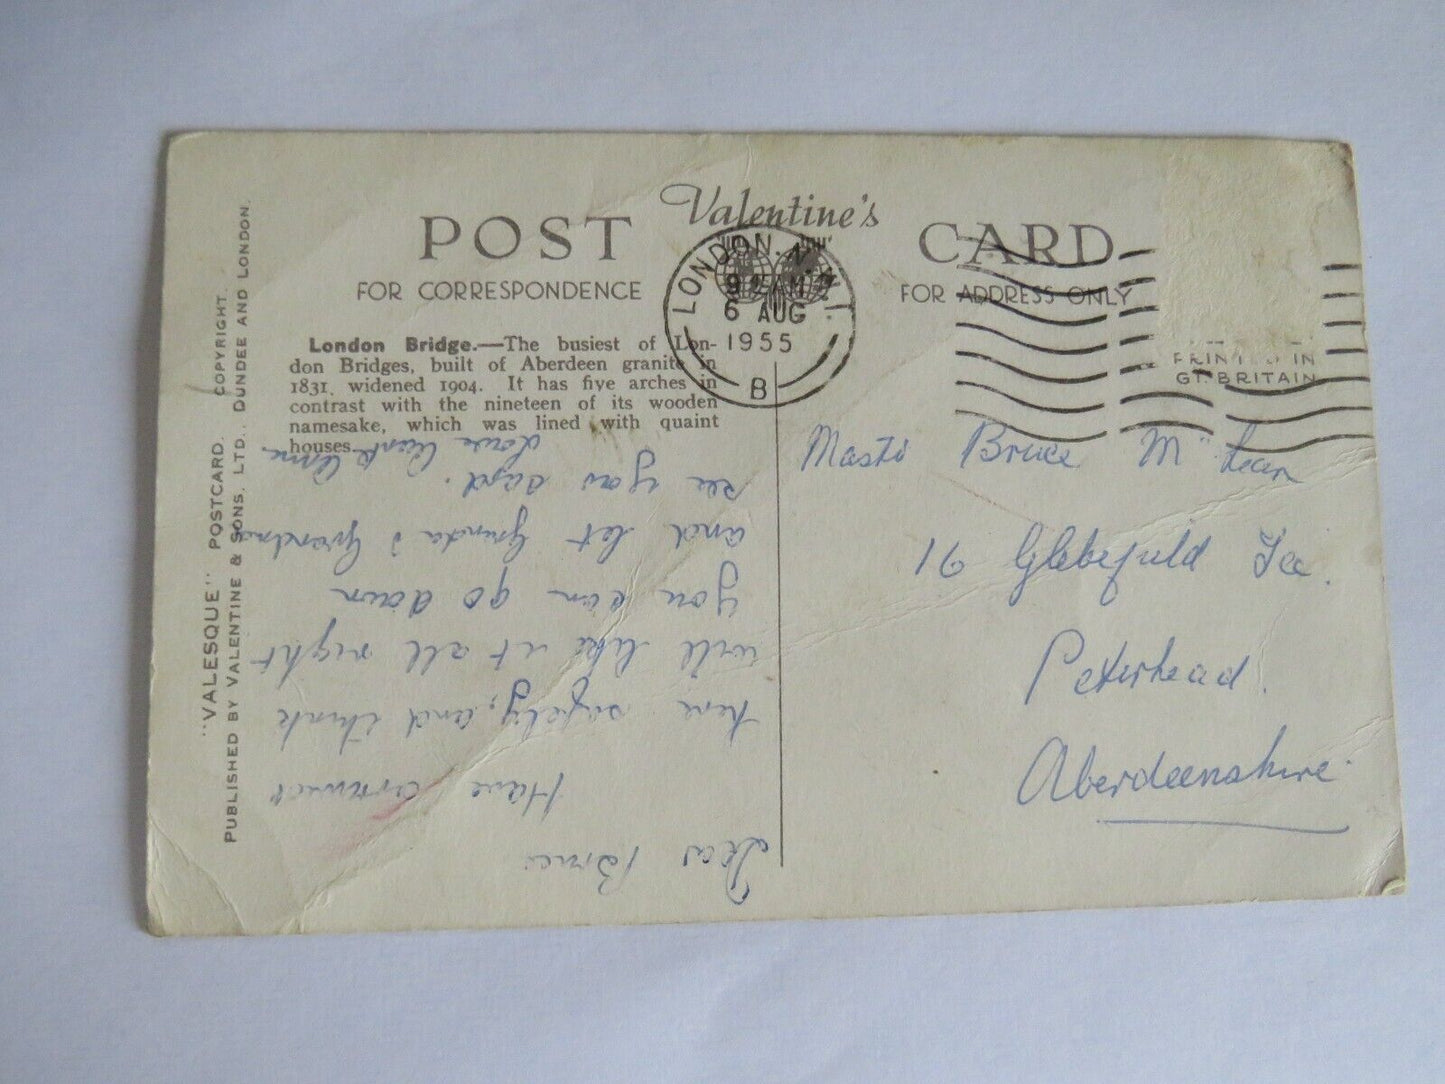 POST Valentine's CARD
FOR CORRESPONDENCE
FOR ADDRESS ONLY
LONDON. N.W.1.
9 AM
6 AUG
1955
B
PRINTED IN
GT. BRITAIN
London Bridge.—The busiest of Lon-
don Bridges, built of Aberdeen granite in
1831, widened 1904. It has five arches in
contrast with the nineteen of its wooden
namesake, which was lined with quaint
houses.
"VALESQUE" POSTCARD. COPYRIGHT.
PUBLISHED BY VALENTINE & SONS, LTD., DUNDEE AND LONDON.
Dear Bruce
Have arrived
here safely, and think
will like it all right
you can go down
and let Granda & Grandma
see your card.
love Aunt
Bruce McLean
16 Glebefield Ter.
Peterhead.
Aberdeenshire.